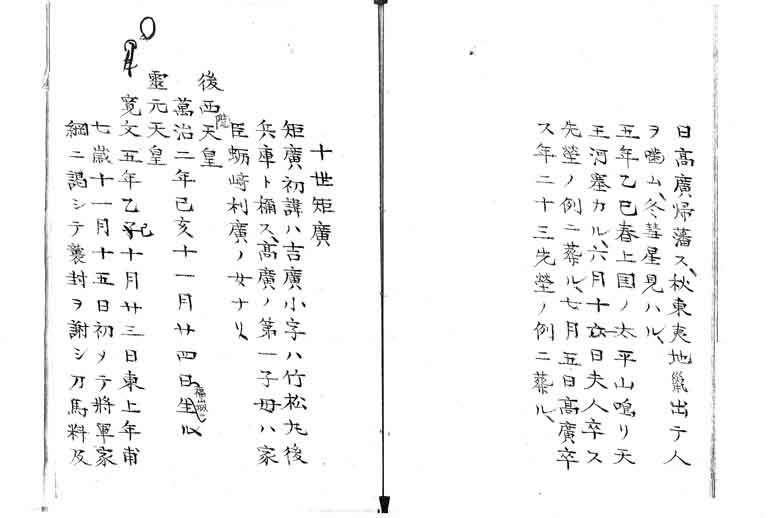 日高廣帰藩ス、秋東夷地鼠出テ人
ヲ噛ム、冬彗星見ハル、
五年乙巳春上国ノ太平山鳴リ天
王河塞カル、六月十六日夫人卒ス
先塋ノ例ニ葬ル、七月五日高廣卒
ス年二十三先塋ノ例ニ葬ル、
十世矩廣
矩廣初諱ハ吉廣小字ハ竹松丸後
兵庫ト稱ス、高廣ノ第一子母ハ家
臣蛎崎利廣ノ女ナリ、
後西院天皇
萬治二年己亥十一月廿四日福山城ニ生ル
霊元天皇
寛文五年乙巳十月廿三日東上年甫
七歳十一月十五日初メテ將軍家
綱ニ謁シテ襲封ヲ謝シ刀馬料及